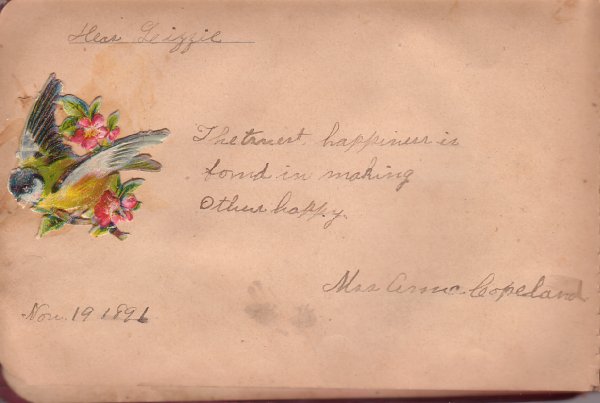 Dear Lizzie
The truest happiness is
found in making
Other happy.
Mrs Annie Copeland
Nov. 19 1891